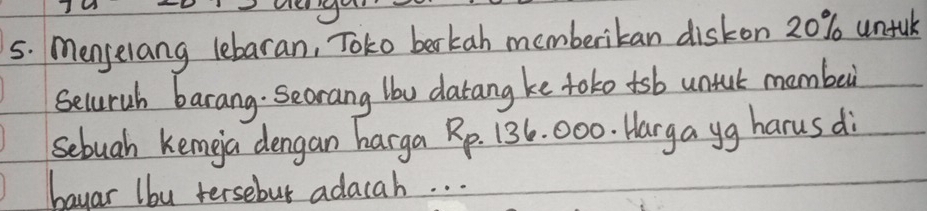 5. Menjelang lebaran, Toko berkah memberikan diskon 20% untuk
Seluruh barang. Seorang Ibu datang ke toko tsb untuk membeli
Sebuah Kemeja dengan harga Rp. 136.000. Harga yg harus di
bayar Ibu tersebut adalah ...